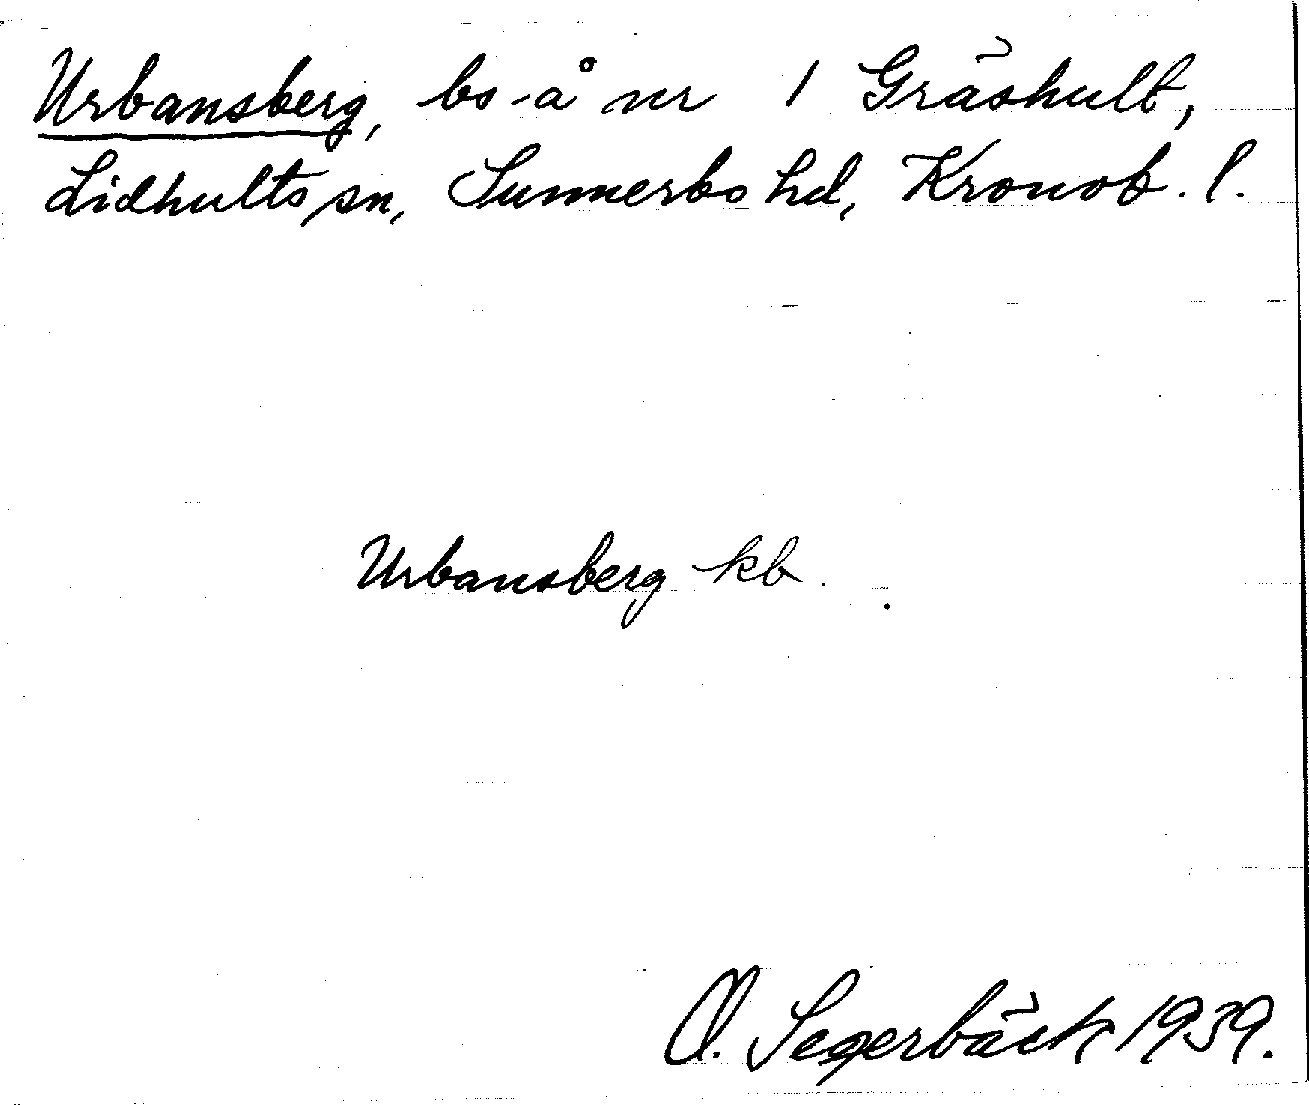 Urbansberg, bs å nr 1 Gräshult,
Lidhults sn, Sunnerbo hd, Kronob. l.
Urbansberg kb.
O. Segerbäck 1939.